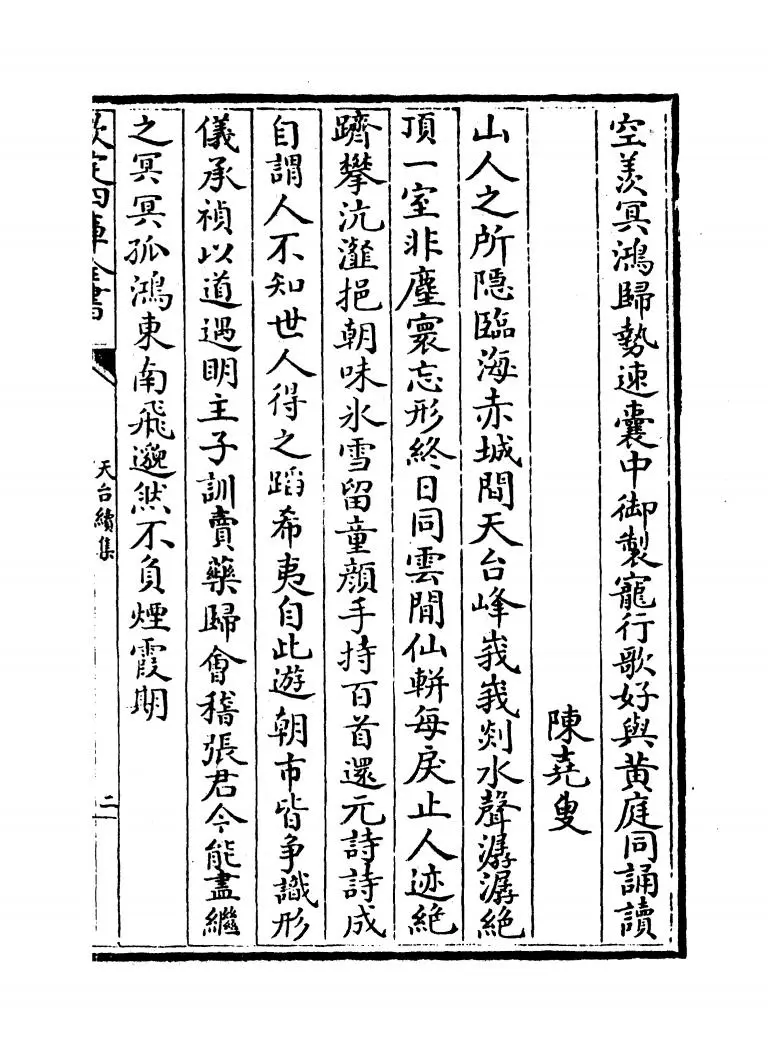 空羨冥鴻歸勢速囊中御製寵行歌好與黄庭同誦讀
陳堯叟
山人之所隱臨海赤城間天台峰峩峩剡水聲潺潺絶
頂一室非塵寰忘形終日同雲閒仙軿每戾止人迹絶
躋攀沆瀣挹朝味氷雪留童顔手持百首還元詩詩成
自謂人不知世人得之蹈希夷自此遊朝市皆争識形
儀承禎以道遇明主子訓賣藥歸會稽張君今能盡繼
之冥冥孤鴻東南飛邈然不負煙霞期
欽定四庫全書
天台續集
二